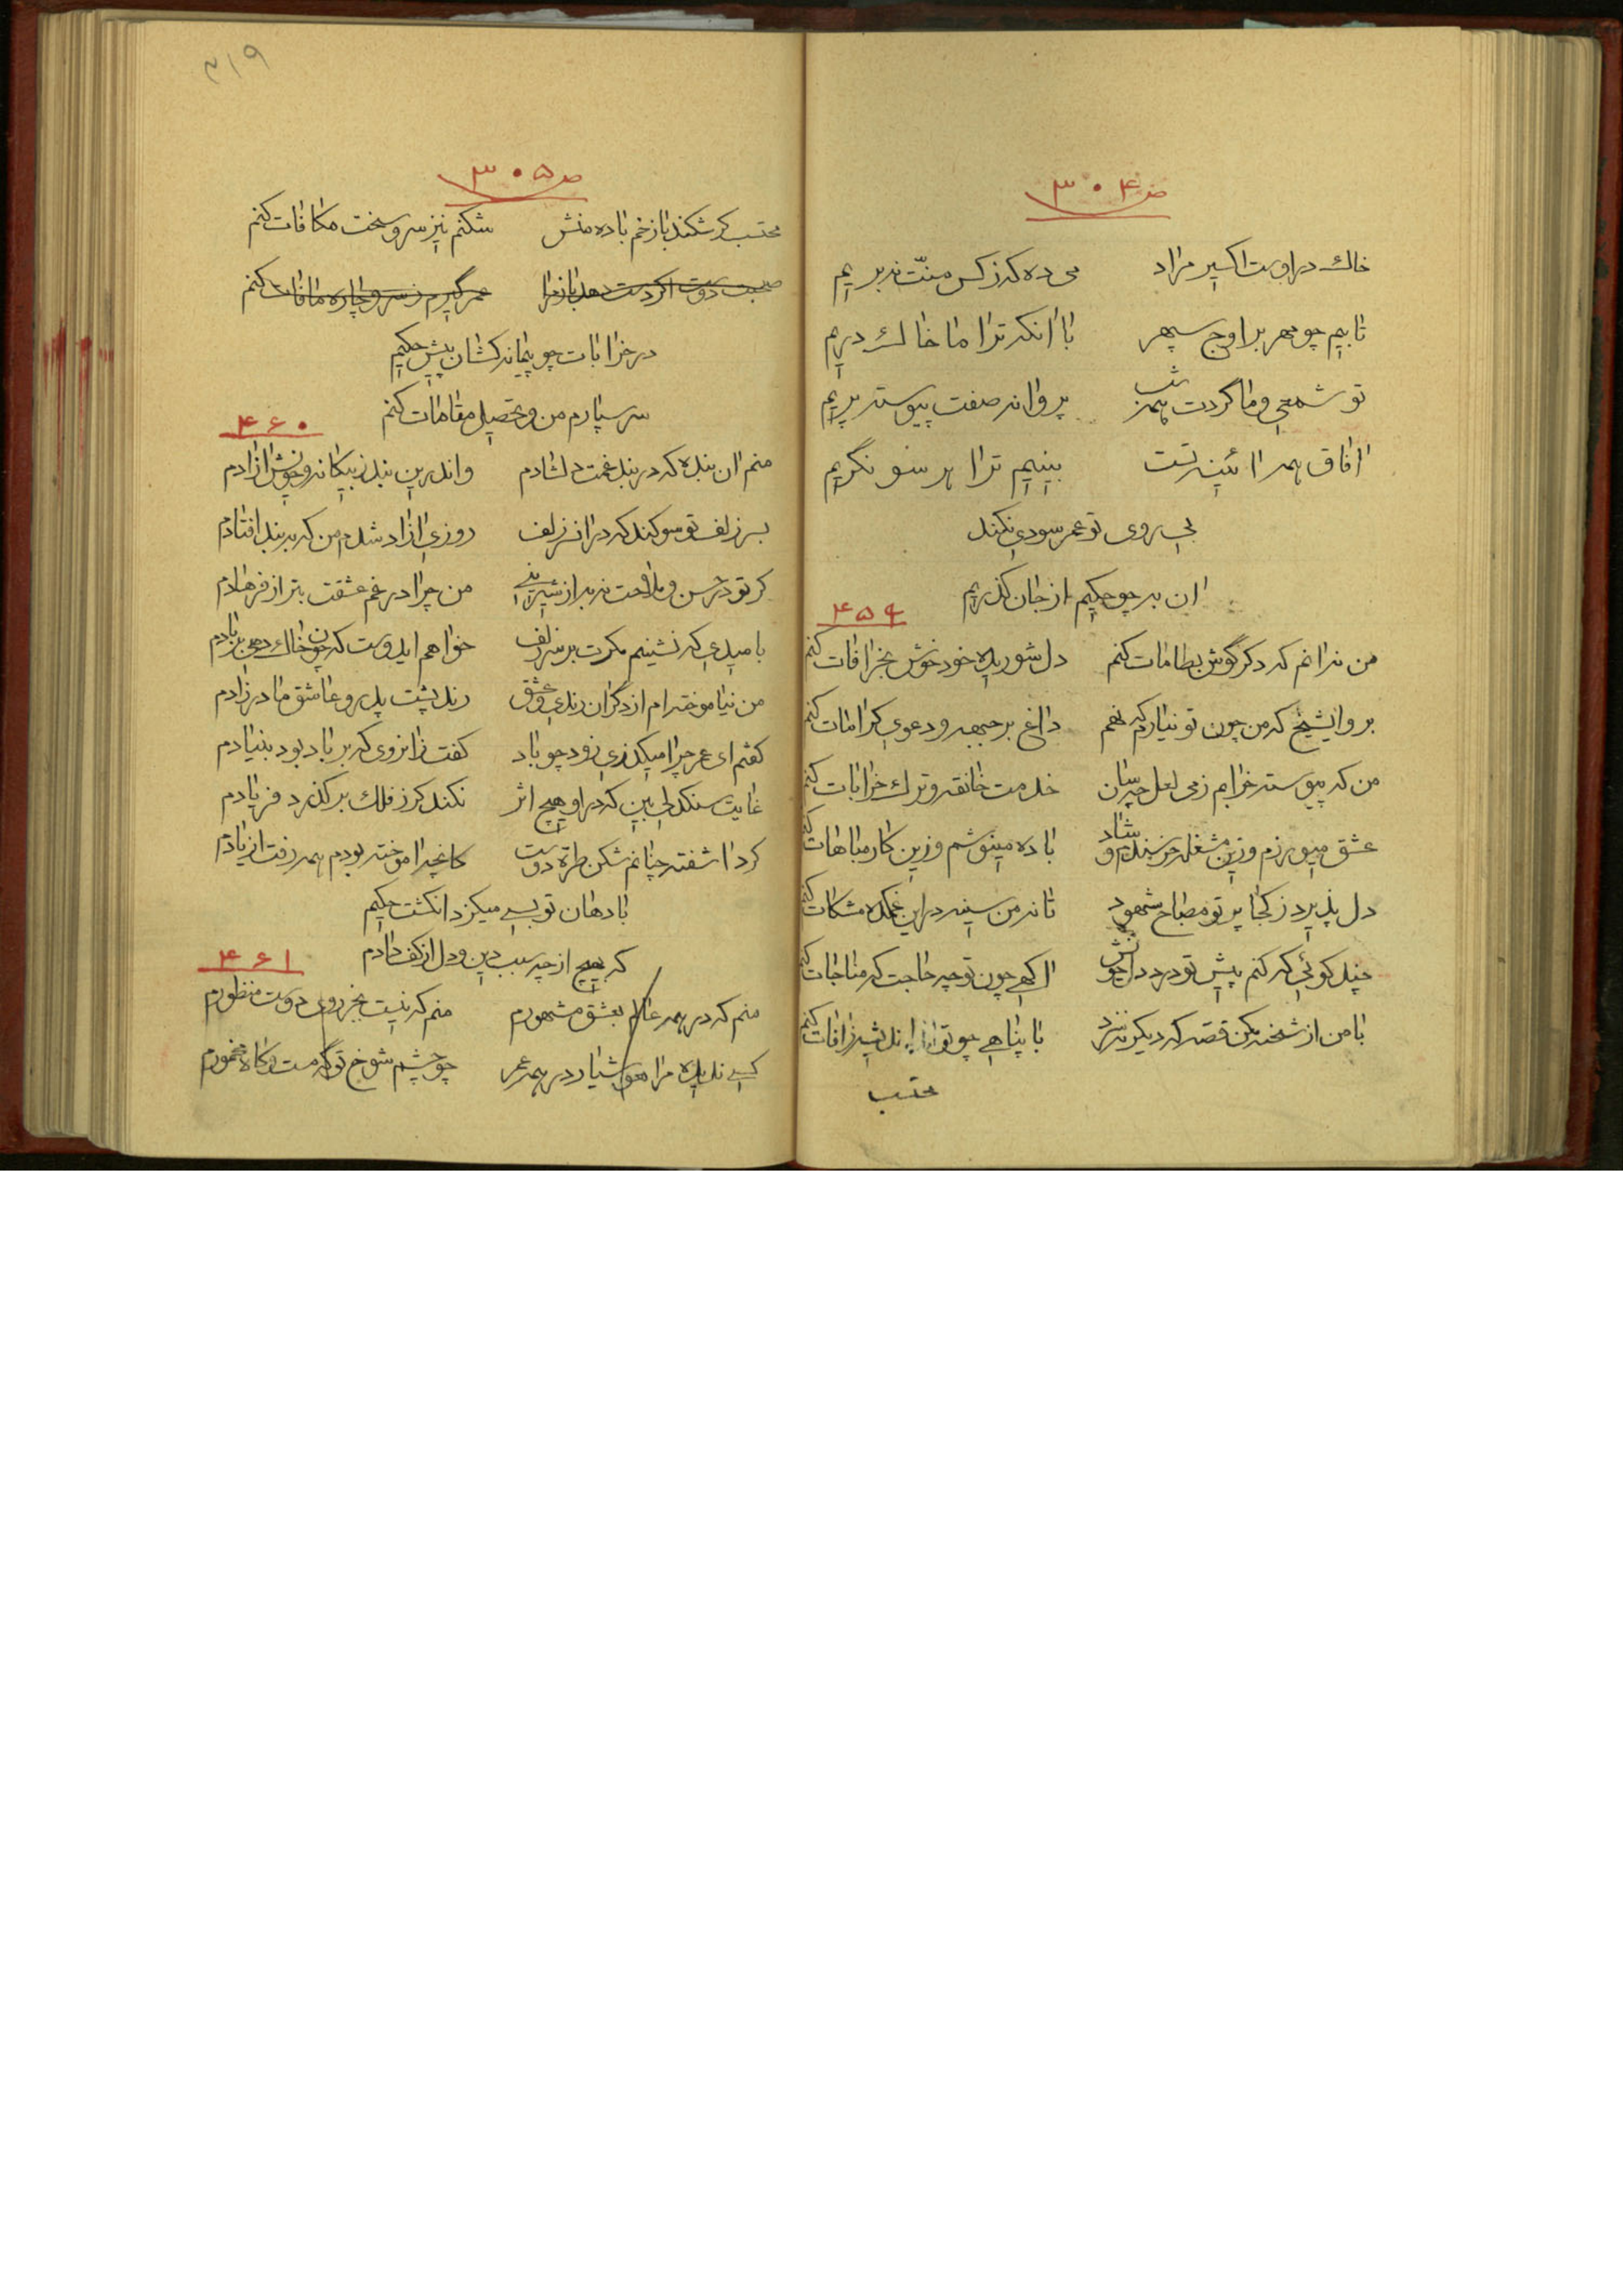 ص ۳۰۴
خاك در اوست اکسیر مراد می ده که ز کس منّت نبریم
تابیم چو مهر بر اوج سپهر با آنکه ترا ما خاك دریم
تو شمعی و ما کردت همه شب پروانه صفت پیوسته پریم
افاق همه آئینه تست بینیم ترا هر سو نگریم
بی روی تو عمر سودی نکند
ان به چو حکیم از جان گذریم
۴۵۹
من نه انم که دکر گوش بطامات کنم دل شوریده خود خوش بخرافات کنم
برو ایشیخ که من چون تو نیارم که نهم داغ بر جبهه و دعوی کرامات کنم
من که پیوسته خرابم ز می لعل خدمت خانقه و ترك خرابات کنم
عشق میورزم و زین مشغله خرسندم و شاد باده مینوشم و زین کار مباهات کنم
دل پذیرد ز کجا پرتو مصباح شهود تا نه من سینه در این غمکده مشکات کنم
چند کوئی که کنم پیش تو درد دل خویش اکهی چون تو چه حاجت که مناجات کنم
با من از شحنه مکن قصه که دیکر نسزد با پناهی چو تو اندیشه ز افات کنم
محتسب
۳۱۹
ص ۳۰۵
محتسب کر شکند باز خم باده منش شکنم نیز سر و سخت مکافات کنم
صحبت دوست اکر دست دهد باز مرا عمر گیرم ز سر و چاره مافات کنم
در خرابات چو پیمانه کشان پیش حکیم
سر سپارم من و تحصیل مقامات کنم
۴۶۰
منم ان بنده که در بند غمت دلشادم واندرین بند ز بیکانه و خویش ازادم
بسر زلف تو سوکند که در انسر زلف روزی ازاد شدم من که به بند افتادم
کر تو در حسن و ملاحت بتر از شیرینی من چرا در غم عشقت بتر از فرهادم
بامیدی که نشینم مکرت بر سر زلف خواهم ایدوست که چون خاك دهی بر بادم
من نیاموخته ام از دگران رندی و عشق رند پشت پدر و عاشق مادرزادم
کفتم ای عمر چرا میکذری زود چو باد کفت زانروی که بر باد بود بنیادم
غایت سنکدلی بین که در او هیچ اثر نکند کر ز فلك بر کذرد فریادم
کرد اشفته چنانم شکن طره دوست کانچه اموخته بودم همه رفت از یادم
با دهان تو بسی میکزد انکشت حکیم
که بهیچ از چه سبب دین و دل از کف دادم
۴۶۱
منم که در همه عالم بعشق مشهورم منم که نیست بجز روی دوست منظورم
کسی ندیده مرا هوشیار در همه عمر چو چشم شوخ تو گه مست و کاه مخمورم